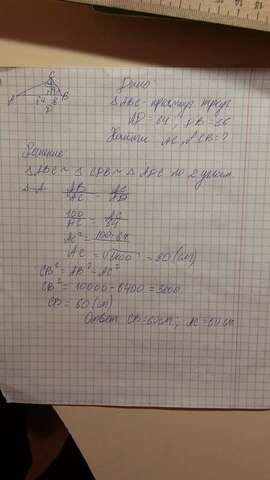 Дано
C
△ABC - прямоуг. треуг.
A 64 36 B
D
AD = 64, DB = 36
Найти AC, CB = ?
Решение
△ABC ~ △CDB ~ △ADC по 2 углам
AB/AC = AC/AD
100/AC = AC/64
AC² = 100·64
AC = √6400 = 80 (см)
CB² = AB² - AC²
CB² = 10000 - 6400 = 3600
CB = 60 (см)
Ответ CB = 60 см; AC =